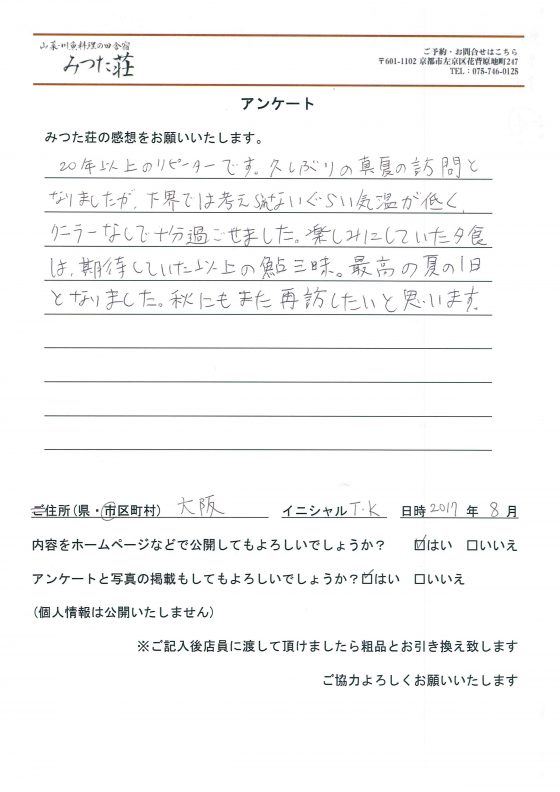 山菜・川魚料理の田舎宿
みつた荘
ご予約・お問合せはこちら
〒601-1102 京都市左京区花背原地町247
TEL：075-746-0125
アンケート
みつた荘の感想をお願いいたします。
20年以上のリピーターです。久しぶりの真夏の訪問と
なりましたが、下界では考えられないぐらい気温が低く、
クーラーなしで十分過ごせました。楽しみにしていた夕食
は、期待していた以上の鮎三昧。最高の夏の1日
となりました。秋にもまた再訪したいと思います。
ご住所(県・市区町村) 大阪 イニシャル T.K 日時 2017 年 8 月
内容をホームページなどで公開してもよろしいでしょうか？ ☑はい □いいえ
アンケートと写真の掲載もしてもよろしいでしょうか？☑はい □いいえ
(個人情報は公開いたしません)
※ご記入後店員に渡して頂けましたら粗品とお引き換え致します
ご協力よろしくお願いいたします